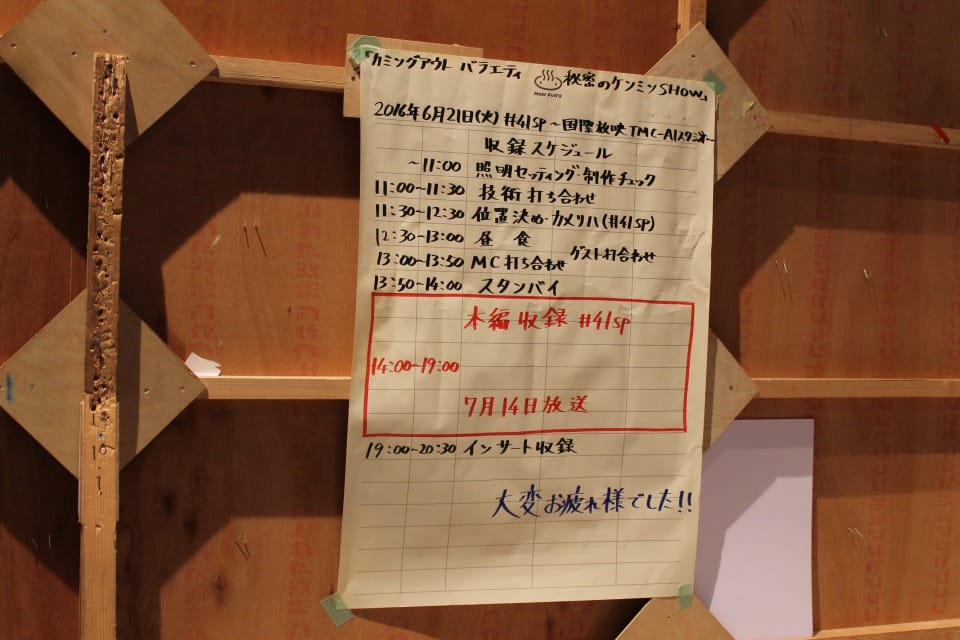 「カミングアウト バラエティ 秘密のケンミンSHOW」
2016年6月21日(火) #41SP ～国際放映TMC-A1スタジオ～
収録スケジュール
～11:00 照明セッティング・制作チェック
11:00～11:30 技術打ち合わせ
11:30～12:30 位置決め・カメリハ(#41SP)
12:30～13:00 昼 食
13:00～13:50 MC打ち合わせ ゲスト打合わせ
13:50～14:00 スタンバイ
本編収録 #41SP
14:00～19:00
7月14日放送
19:00～20:30 インサート収録
大変お疲れ様でした!!